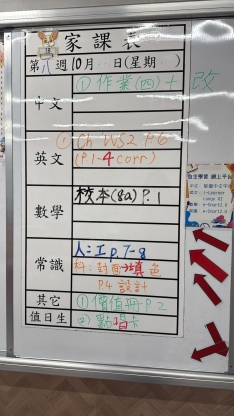 家課表
第八週10月 日(星期 )
中文
① 作業(四)+改
英文
① Ch WS2 P.6
(P.1-4 corr)
數學
校本(8a) P.1
常識
人:工p.7-8
科:封面填色
P4 設計
其它
① 價值冊 P.2
值日生
② 點唱卡
自主學習 網上平台